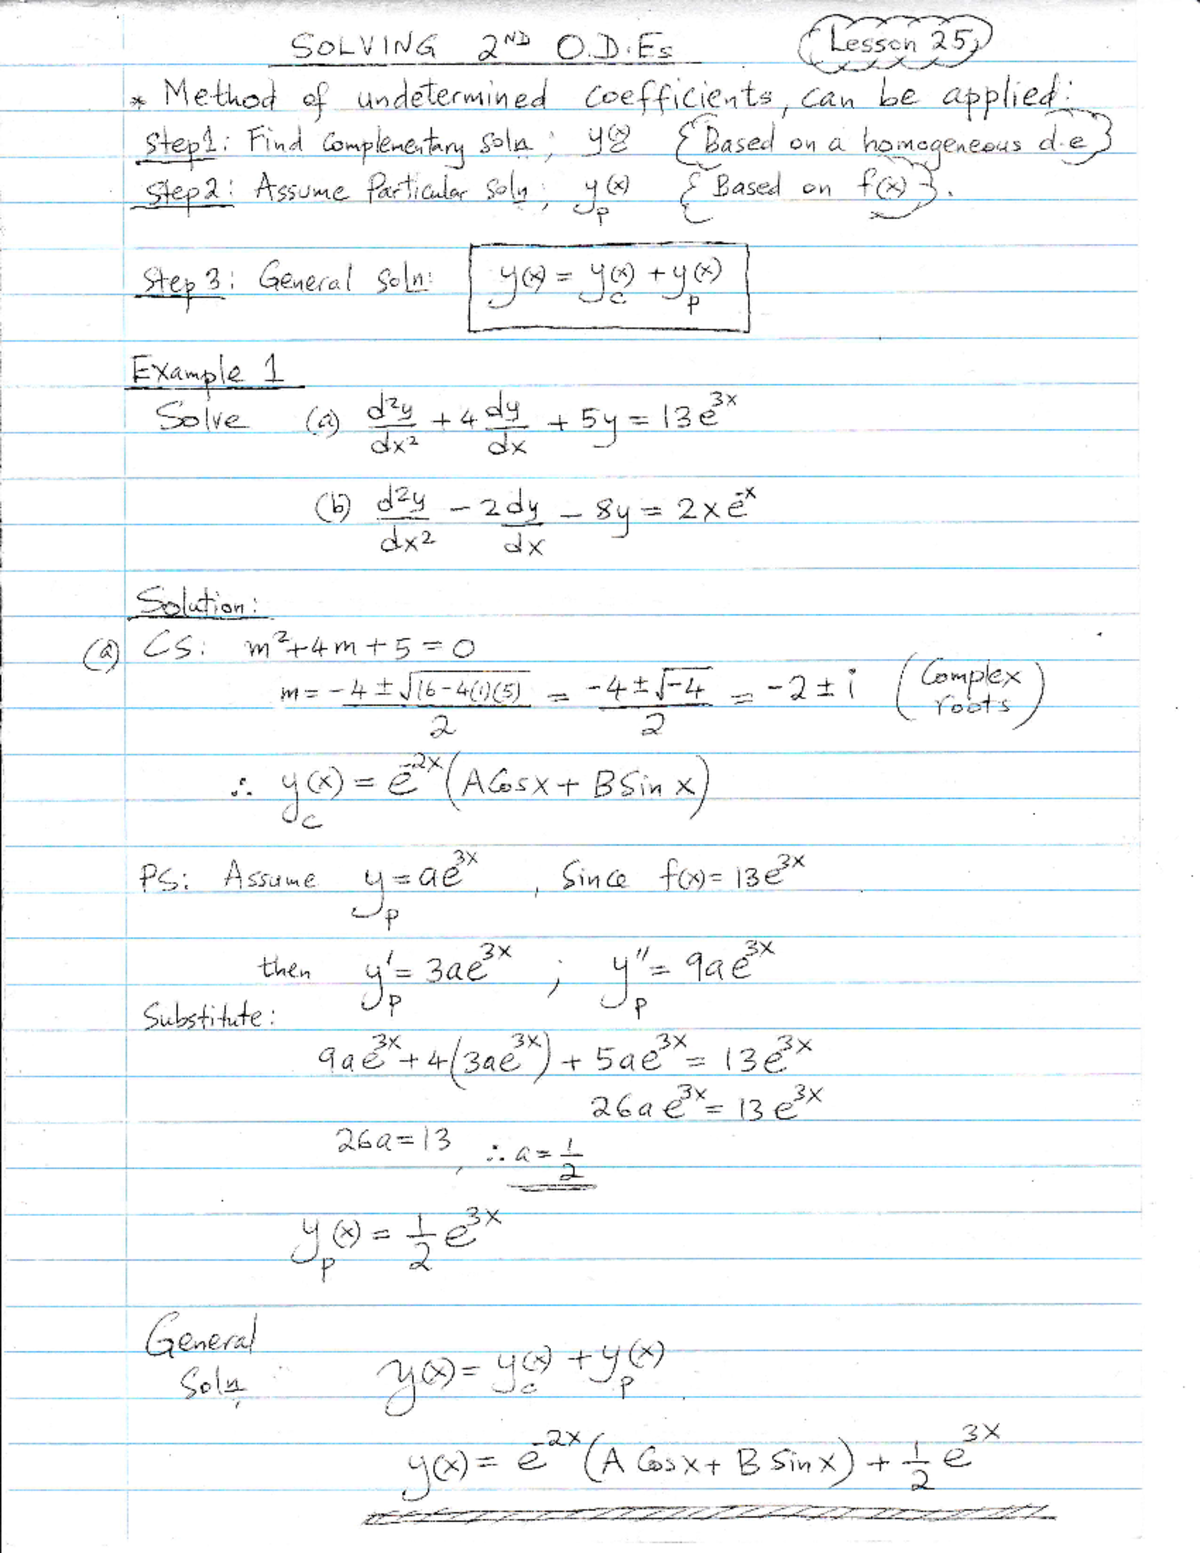 SOLVING 2ND O.D.Es
Lesson 25
* Method of undetermined coefficients, can be applied:
Step1: Find Complementary Soln; y_c(x) {Based on a homogeneous d.e}
Step2: Assume Particular Soln; y_p(x) {Based on f(x)}.
Step 3: General Soln: y(x) = y_c(x) + y_p(x)
Example 1
Solve (a) d²y/dx² + 4 dy/dx + 5y = 13e^3x
(b) d²y/dx² - 2dy/dx - 8y = 2xe^-x
Solution:
(a) CS: m²+4m+5=0
m = -4 ± √16-4(1)(5) / 2 = -4±√-4 / 2 = -2 ± i (Complex roots)
∴ y_c(x) = e^-2x (A Cos x + B Sin x)
PS: Assume y_p = ae^3x, Since f(x) = 13e^3x
then y_p' = 3ae^3x ; y_p'' = 9ae^3x
Substitute:
9ae^3x + 4(3ae^3x) + 5ae^3x = 13e^3x
26ae^3x = 13e^3x
26a=13, ∴ a = 1/2
y_p(x) = 1/2 e^3x
General
Soln
y(x) = y_c(x) + y_p(x)
y(x) = e^-2x (A Cos x + B Sin x) + 1/2 e^3x